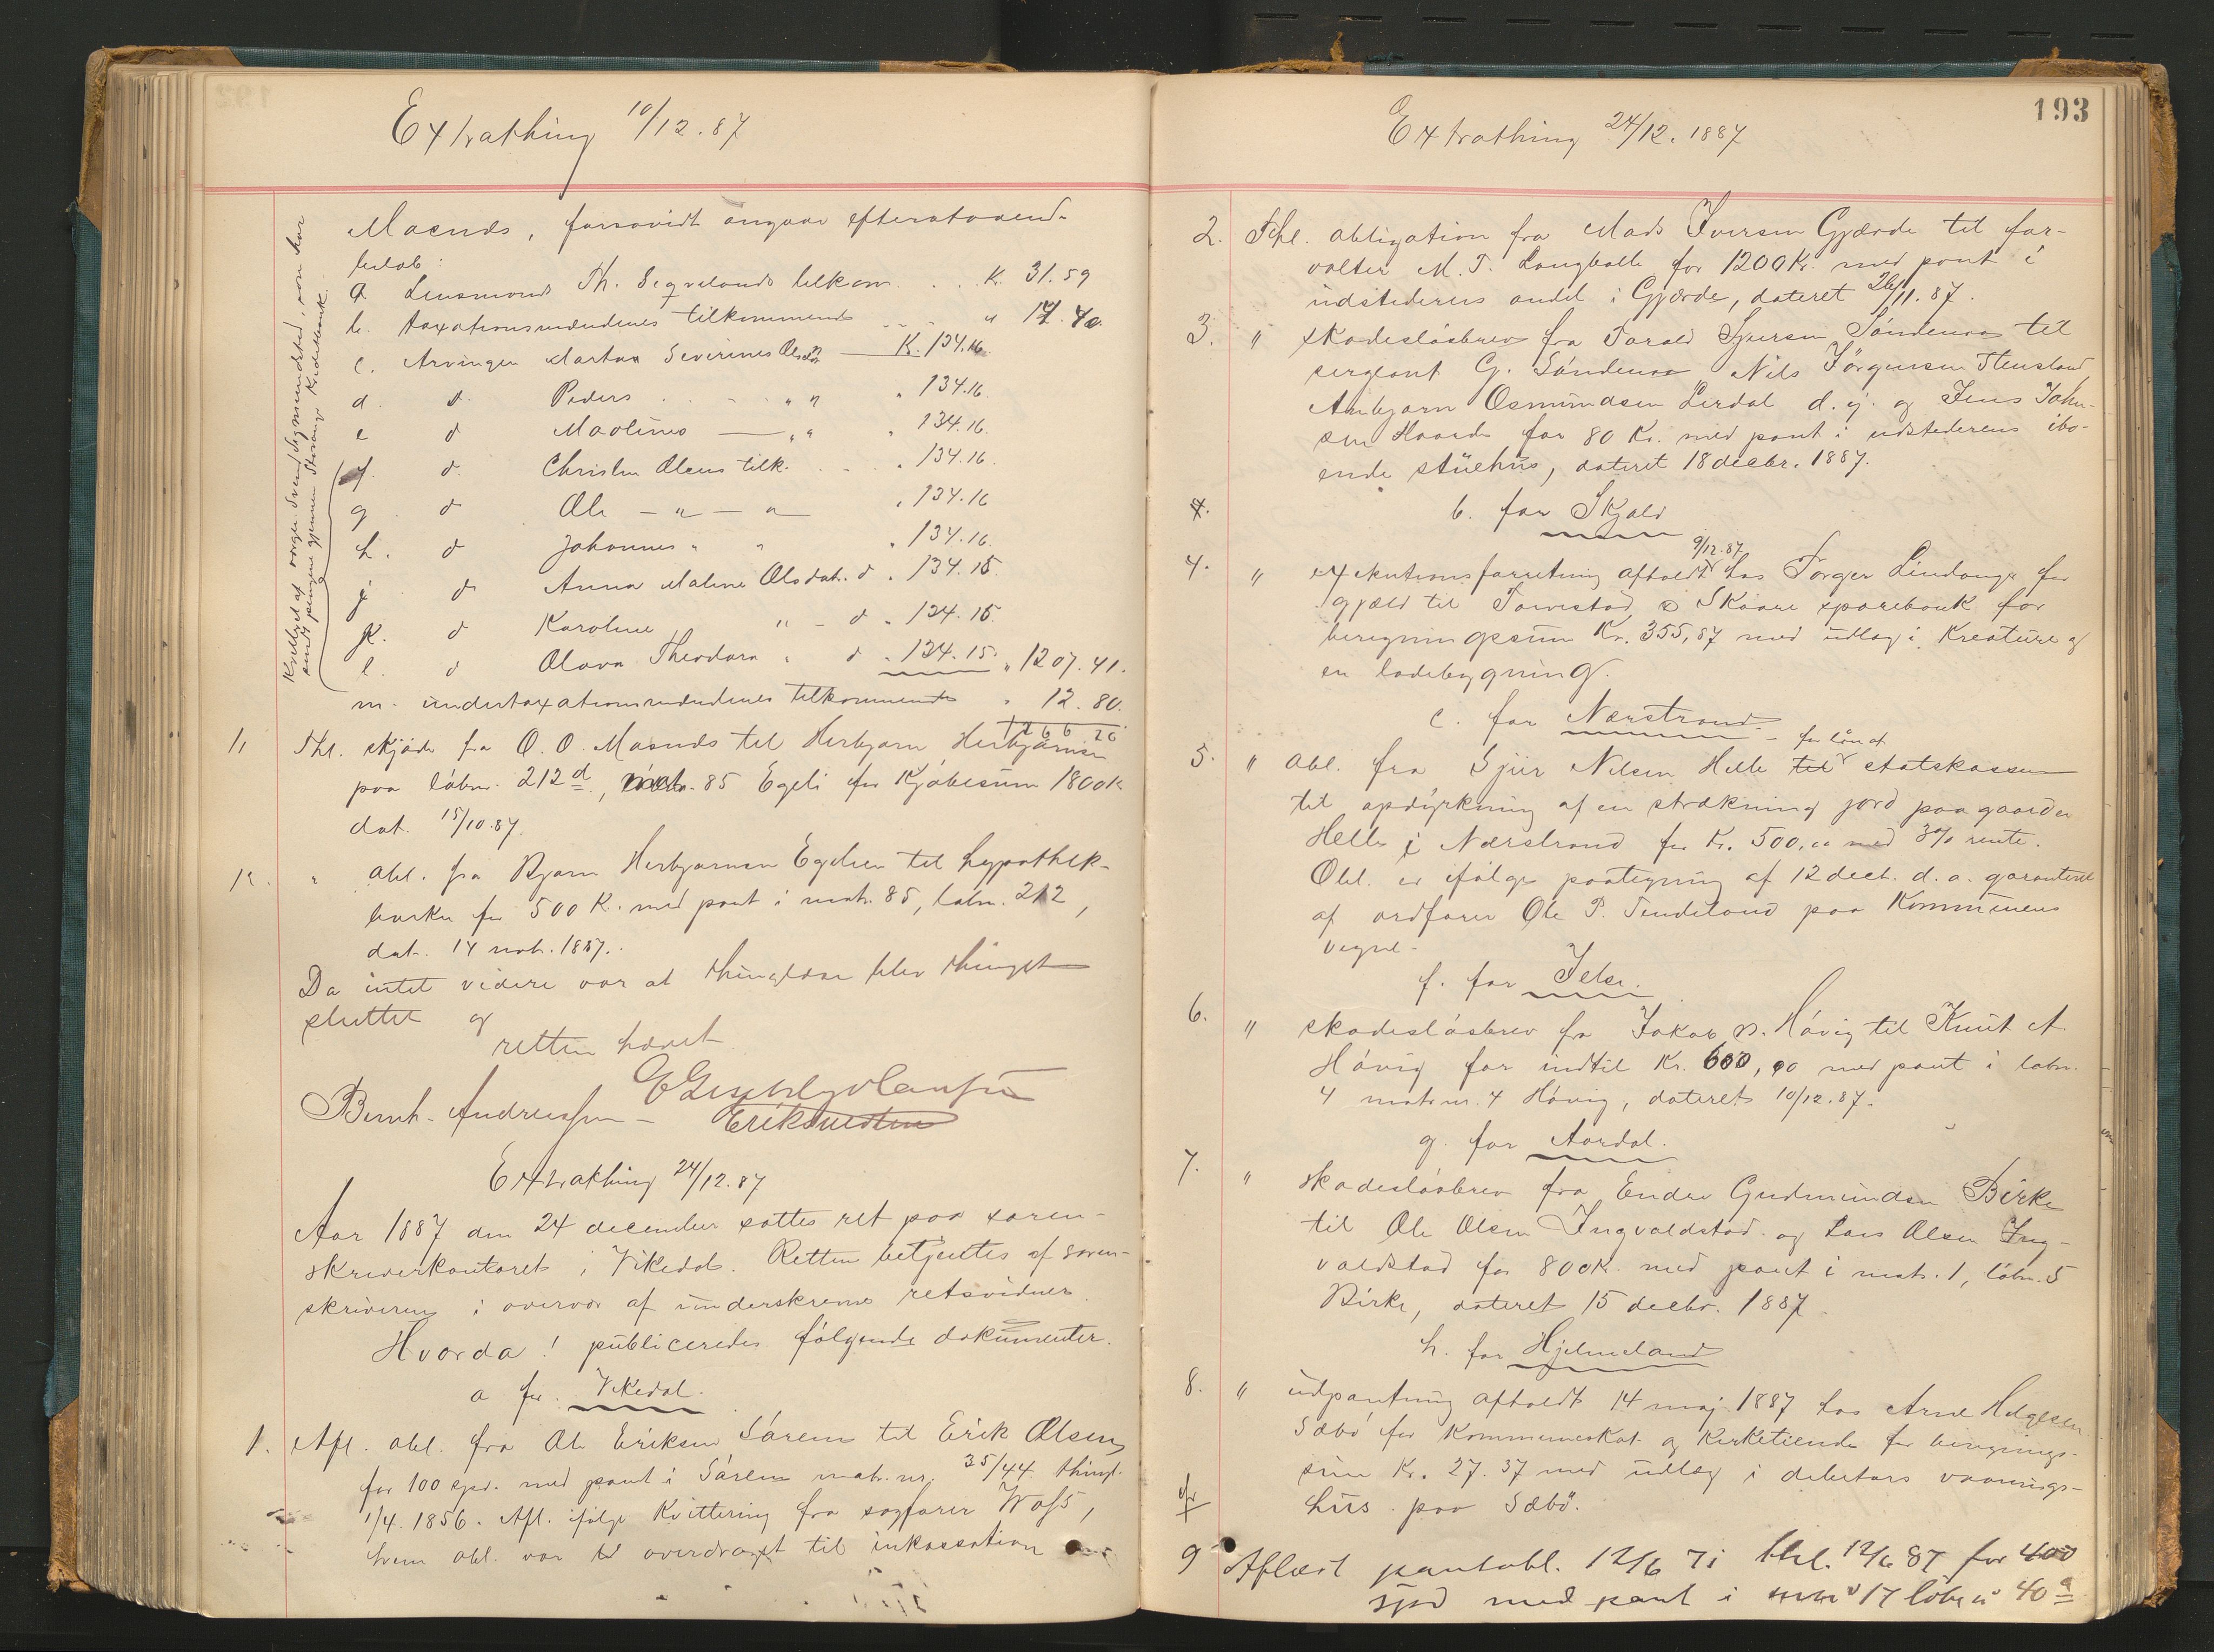 Extrathing 10/12.87
Maends, forsovidt angaar efterstaaende
beløb:
a. Lensmand Th. Segvelands tilkom. . . Kr. 31.59
b. taxationsmændenes tilkommende " 14.40
c. Arvingen Martha Severines Olsdtr — Kr. 134.16
d. d Peders . . . " " " 134.16.
e d Maolines — " " " 134.16.
f. d. Christen Olsens tilk. . . " 134.16.
g d Ole — " — " " 134.16
h. d Johannes " " " 134.16.
j. d Anna Maline Olsdatr. d " 134.15.
k. d Karoline " - d " 134.15.
l. d Olava Theodora " d " 134.15. " 1207.41.
m. undertaxationsmændenes tilkommende " 12.80.
1266 20
Kvitteret af
11 Thl. skjøde fra O. O. Maends til Herbjørn Herbjørnsen
paa løbnr. 212d, matr. 85 Egeli for Kjøbesum 1800 K
dat. 15/10.87.
12. " obl. fra Bjørn Herbjørnsen Egelien til hypothek-
banken for 500 K. med pant i matr. 85, løbn. 212,
dat. 14 nov. 1887.
Da intet videre var at thinglæse blev thinget
sluttet og
retten hævet
Bernt Andreassen —
Extrathing 24/12.87
Aar 1887 den 24 december sattes ret paa soren-
skriverkontoret i Vikedal. Retten betjentes af soren-
skriveren i overvær af underskrevne retsvidner.
Hvorda! publiceredes følgende dokumenter.
a for Vikedal.
1. Afl. obl. fra Ole Eriksen Sørem til Erik Olsen
for 100 spd. med pant i Sørem matr. nr. 35/44. thingl.
1/4. 1856. Afl. ifølge Kvittering fra sagfører Wass,
hvem obl. var overdraget til inkassation
193
Extrathing 24/12. 1887
2. Thl. obligation fra Mads Iversen Gjærde til for-
valter M. T. Langballe for 1200 Kr. med pant i
udstederens andel i Gjærde, dateret 26/11.87.
3. " skadesløsbrev fra Torald Sjursen Søndenaa til
sergeant G. Søndenaa Nils Jørgensen Stensland
Anbjørn Osmundsen Lerdal d. y. og Jens John-
sen Haarde for 80 Kr. med pant i udstederens ibo-
ende stuehus, dateret 18 decbr. 1887.
4.
b. for Skjold
9/12.87
4. " exekutionsforretning afholdt hos Torger Lindanger for
gjæld til Torvestad & Skaare sparebank for
beregningssum Kr. 355,87 med udlæg i Kreature og
en ladebygning.
c. for Nærstrand
for lån af
5. " obl. fra Sjur Nilsen Helle til statskassen
til opdyrkning af en strækning jord paa gaarden
Helle i Nærstrand for Kr. 500,00 med 3% rente.
Obl. er ifølge paategning af 12 decb. d. a. garanteret
af ordfører Ole P. Tendeland paa Kommunens
vegne.
f. for Jelse.
6. " skadesløsbrev fra Jakob N. Høvig til Knut A.
Høvig for indtil Kr. 600,00 med pant i løbn.
4 matr. nr. 4 Høvig, dateret 10/12.87.
g. for Aardal.
7. " skadesløsbrev fra Endre Gudmundsen Birke
til Ole Olsen Ingvaldstad og Lars Olsen Ing-
valdstad for 800 K. med pant i matr. 1, løbn. 5
Birke, dateret 15 decbr. 1887
h. for Hjelmeland
8. " udpantning afholdt 14 maj 1887 hos Arne Helgesen
Sæbø for Kommuneskat og Kirketiende for beregnings-
sum Kr. 27.37 med udlæg i debitors vaanings-
hus paa Sæbø.
9 Aflæst pantobl. 12/6 71 thl. 12/6 87 for 400
spd med pant i matr 17 løbn 40a